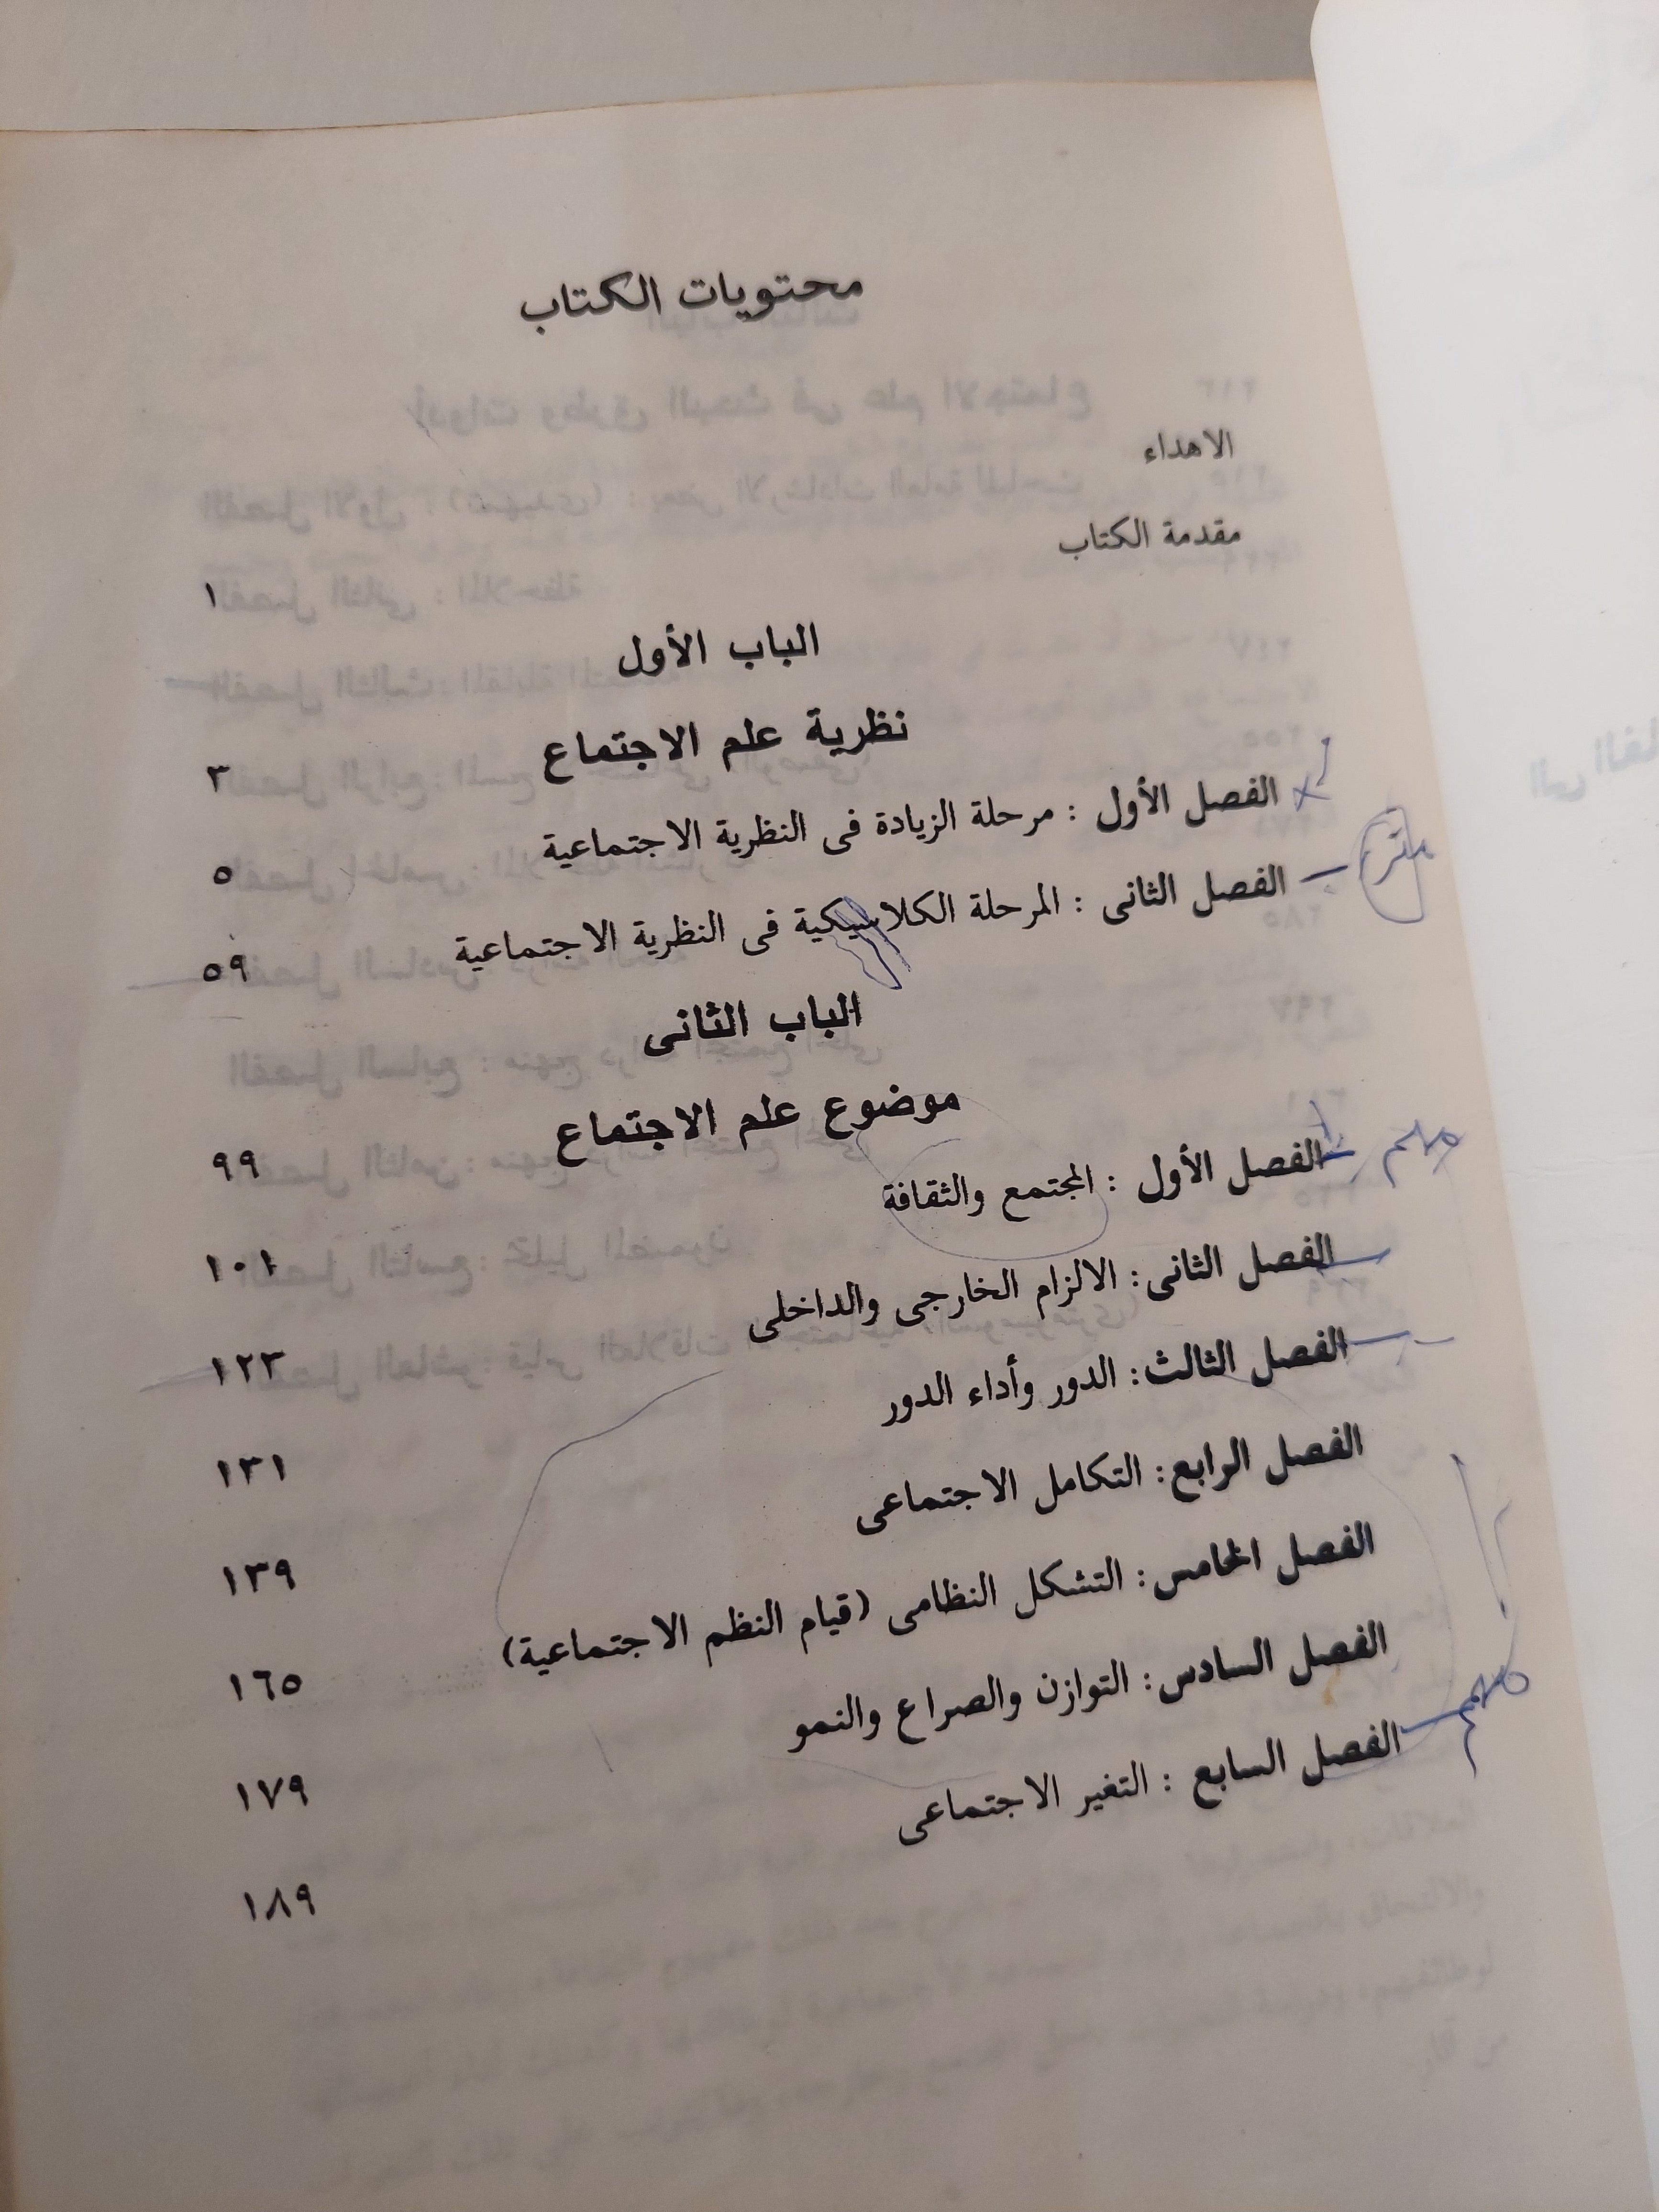 محتويات الكتاب
الاهداء
مقدمة الكتاب ١
الباب الأول
نظرية علم الاجتماع ٣
الفصل الأول : مرحلة الزيادة فى النظرية الاجتماعية ٥
الفصل الثانى : المرحلة الكلاسيكية فى النظرية الاجتماعية ٥٩
الباب الثانى
موضوع علم الاجتماع ٩٩
مهم الفصل الأول : المجتمع والثقافة ١٠١
الفصل الثانى : الالزام الخارجى والداخلى ١٢٣
الفصل الثالث : الدور وأداء الدور ١٣١
الفصل الرابع : التكامل الاجتماعى ١٣٩
الفصل الخامس : التشكل النظامى (قيام النظم الاجتماعية) ١٦٥
الفصل السادس : التوازن والصراع والنمو ١٧٩
مهم الفصل السابع : التغير الاجتماعى ١٨٩